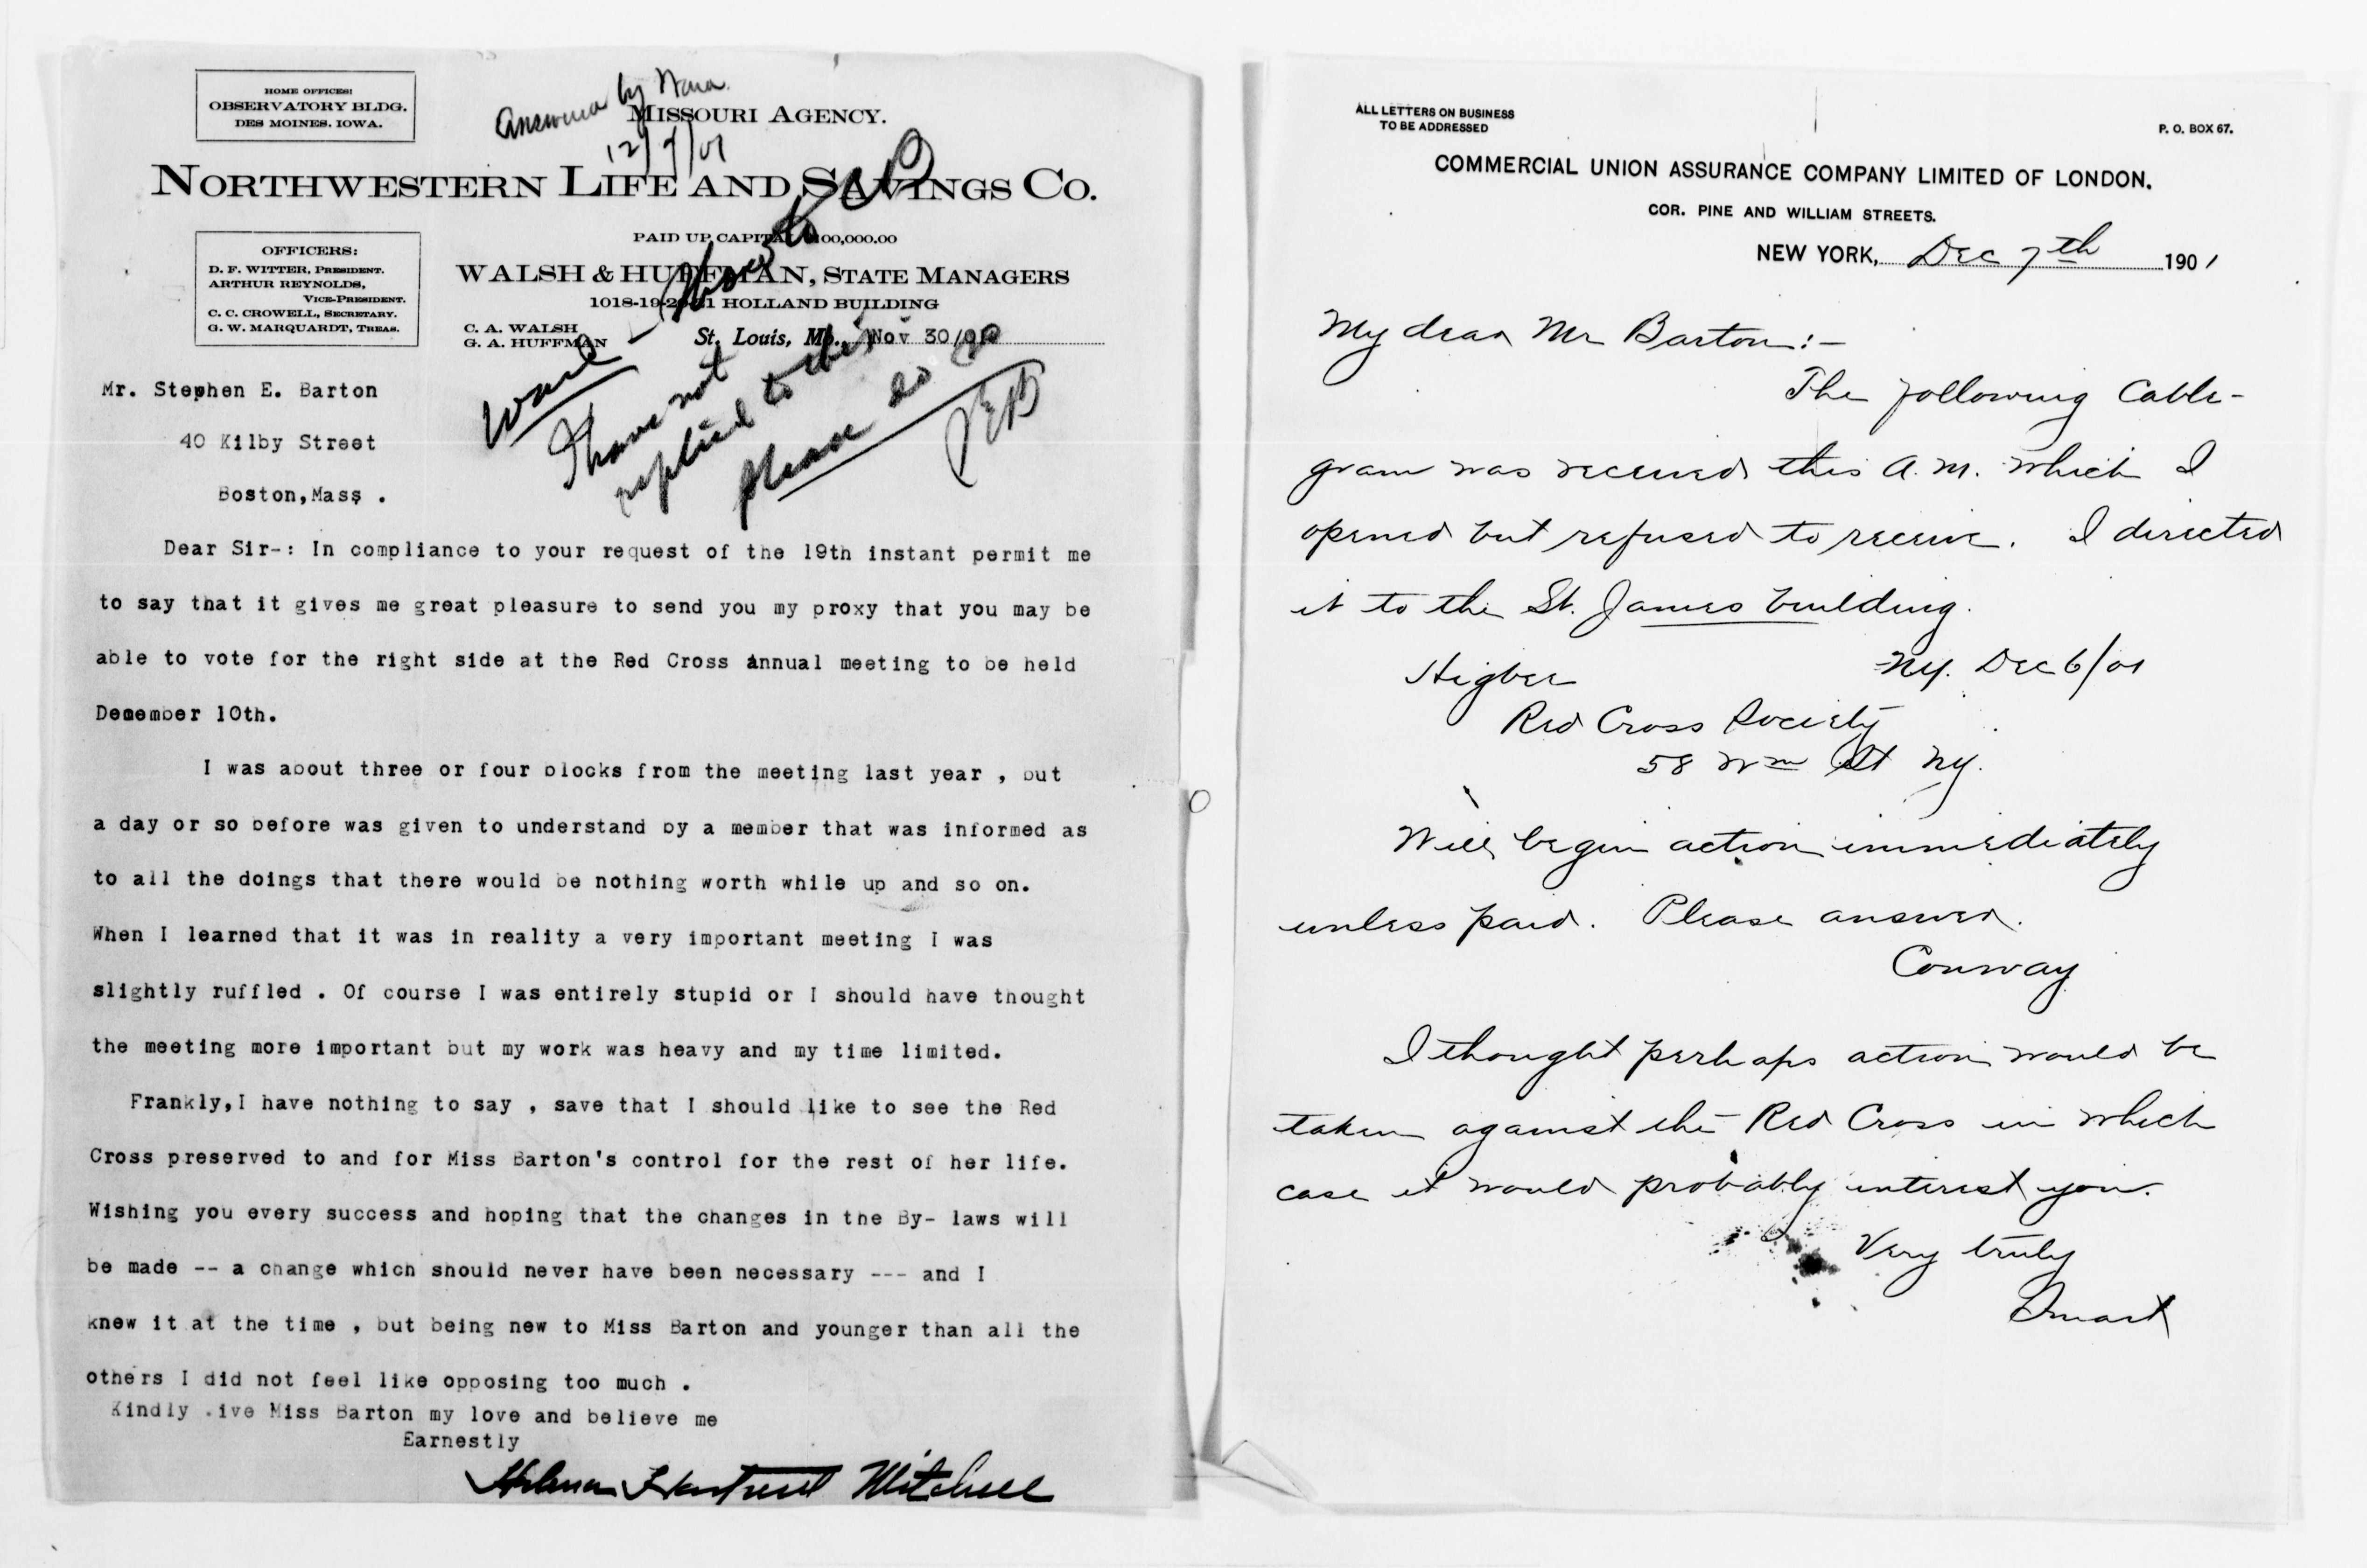 HOME OFFICES:
OBSERVATORY BLDG.
DES MOINES. IOWA.
Answered by
12/9/01
MISSOURI AGENCY.
NORTHWESTERN LIFE AND SAVINGS CO.
PAID UP CAPITAL $100,000.00
OFFICERS:
D. F. WITTER, PRESIDENT.
ARTHUR REYNOLDS,
VICE-PRESIDENT.
C. C. CROWELL, SECRETARY.
G. W. MARQUARDT, TREAS.
WALSH & HUFFMAN, STATE MANAGERS
1018-19-20-21 HOLLAND BUILDING
C. A. WALSH
G. A. HUFFMAN
St. Louis, Mo., Nov 30/01
I have not
replied to this
please do so
SEB
Mr. Stephen E. Barton
40 Kilby Street
Boston,Mass .
Dear Sir-: In compliance to your request of the 19th instant permit me
to say that it gives me great pleasure to send you my proxy that you may be
able to vote for the right side at the Red Cross annual meeting to be held
Demember 10th.
I was about three or four blocks from the meeting last year , but
a day or so before was given to understand by a member that was informed as
to all the doings that there would be nothing worth while up and so on.
When I learned that it was in reality a very important meeting I was
slightly ruffled . Of course I was entirely stupid or I should have thought
the meeting more important but my work was heavy and my time limited.
Frankly,I have nothing to say , save that I should like to see the Red
Cross preserved to and for Miss Barton's control for the rest of her life.
Wishing you every success and hoping that the changes in the By- laws will
be made -- a change which should never have been necessary --- and I
knew it at the time , but being new to Miss Barton and younger than all the
others I did not feel like opposing too much .
Kindly .ive Miss Barton my love and believe me
Earnestly
Mitchell
ALL LETTERS ON BUSINESS
TO BE ADDRESSED
P. O. BOX 67.
COMMERCIAL UNION ASSURANCE COMPANY LIMITED OF LONDON.
COR. PINE AND WILLIAM STREETS.
NEW YORK, Dec 7th 1901
My dear Mr Barton:-
The following Cable-
gram was received this A.M. which I
opened but refused to receive. I directed
it to the St. James building.
NY. Dec 6/01
Higbee
Red Cross Society
58 Wm St NY.
Will begin action immediately
unless paid. Please answer.
Conway
I thought perhaps action would be
taken against the Red Cross in which
case it would probably interest you.
Very truly